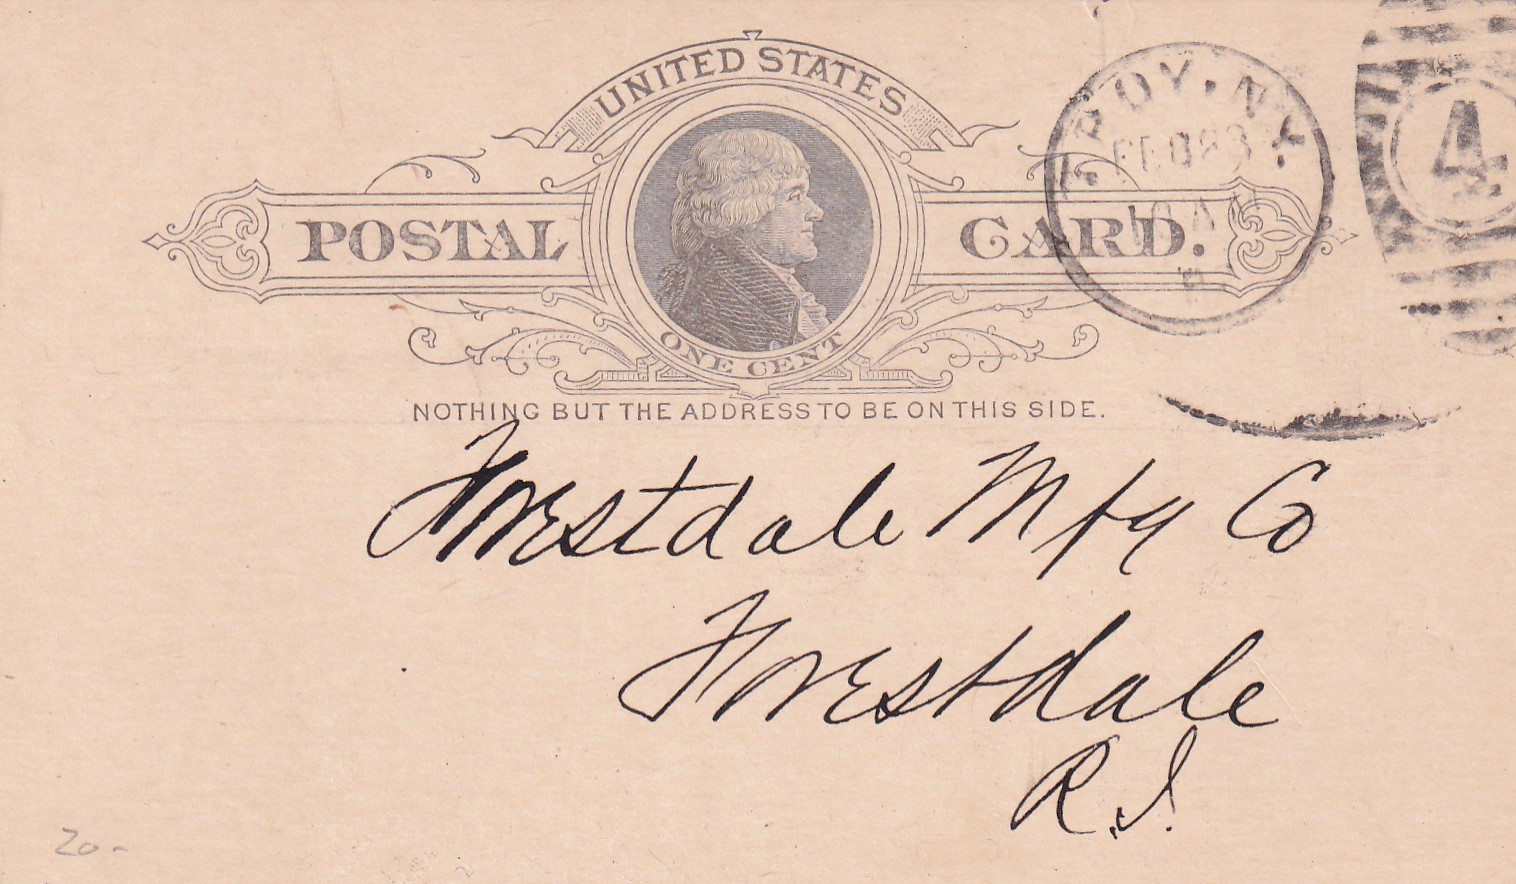 UNITED STATES
POSTAL CARD.
ONE CENT
NOTHING BUT THE ADDRESS TO BE ON THIS SIDE.
TROY. N.Y.
FEB
10 AM
4
Forestdale Mfg Co
Forestdale
R.I.
20-